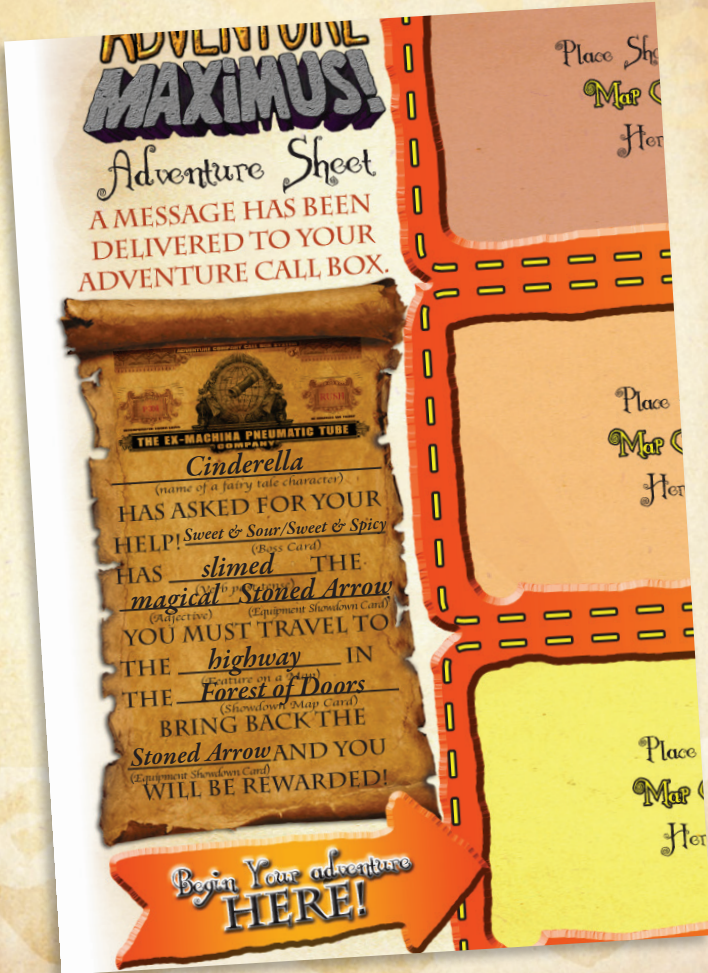 ADVENTURE
MAXiMUS!
Adventure Sheet
A MESSAGE HAS BEEN
DELIVERED TO YOUR
ADVENTURE CALL BOX.
ADVENTURE COMPANY CALL BOX SYSTEM
RUSH
THE EX-MACHINA PNEUMATIC TUBE
COMPANY
Cinderella
(name of a fairy tale character)
HAS ASKED FOR YOUR
HELP! Sweet & Sour/Sweet & Spicy
(Boss Card)
HAS slimed THE
(Verb past tense)
magical Stoned Arrow
(Adjective) (Equipment Showdown Card)
YOU MUST TRAVEL TO
THE highway IN
(Feature on a Map)
THE Forest of Doors
(Showdown Map Card)
BRING BACK THE
Stoned Arrow AND YOU
(Equipment Showdown Card)
WILL BE REWARDED!
Begin Your adventure
HERE!
Place Sho
Map C
Her
Place
Map C
Her
Place
Map C
Her